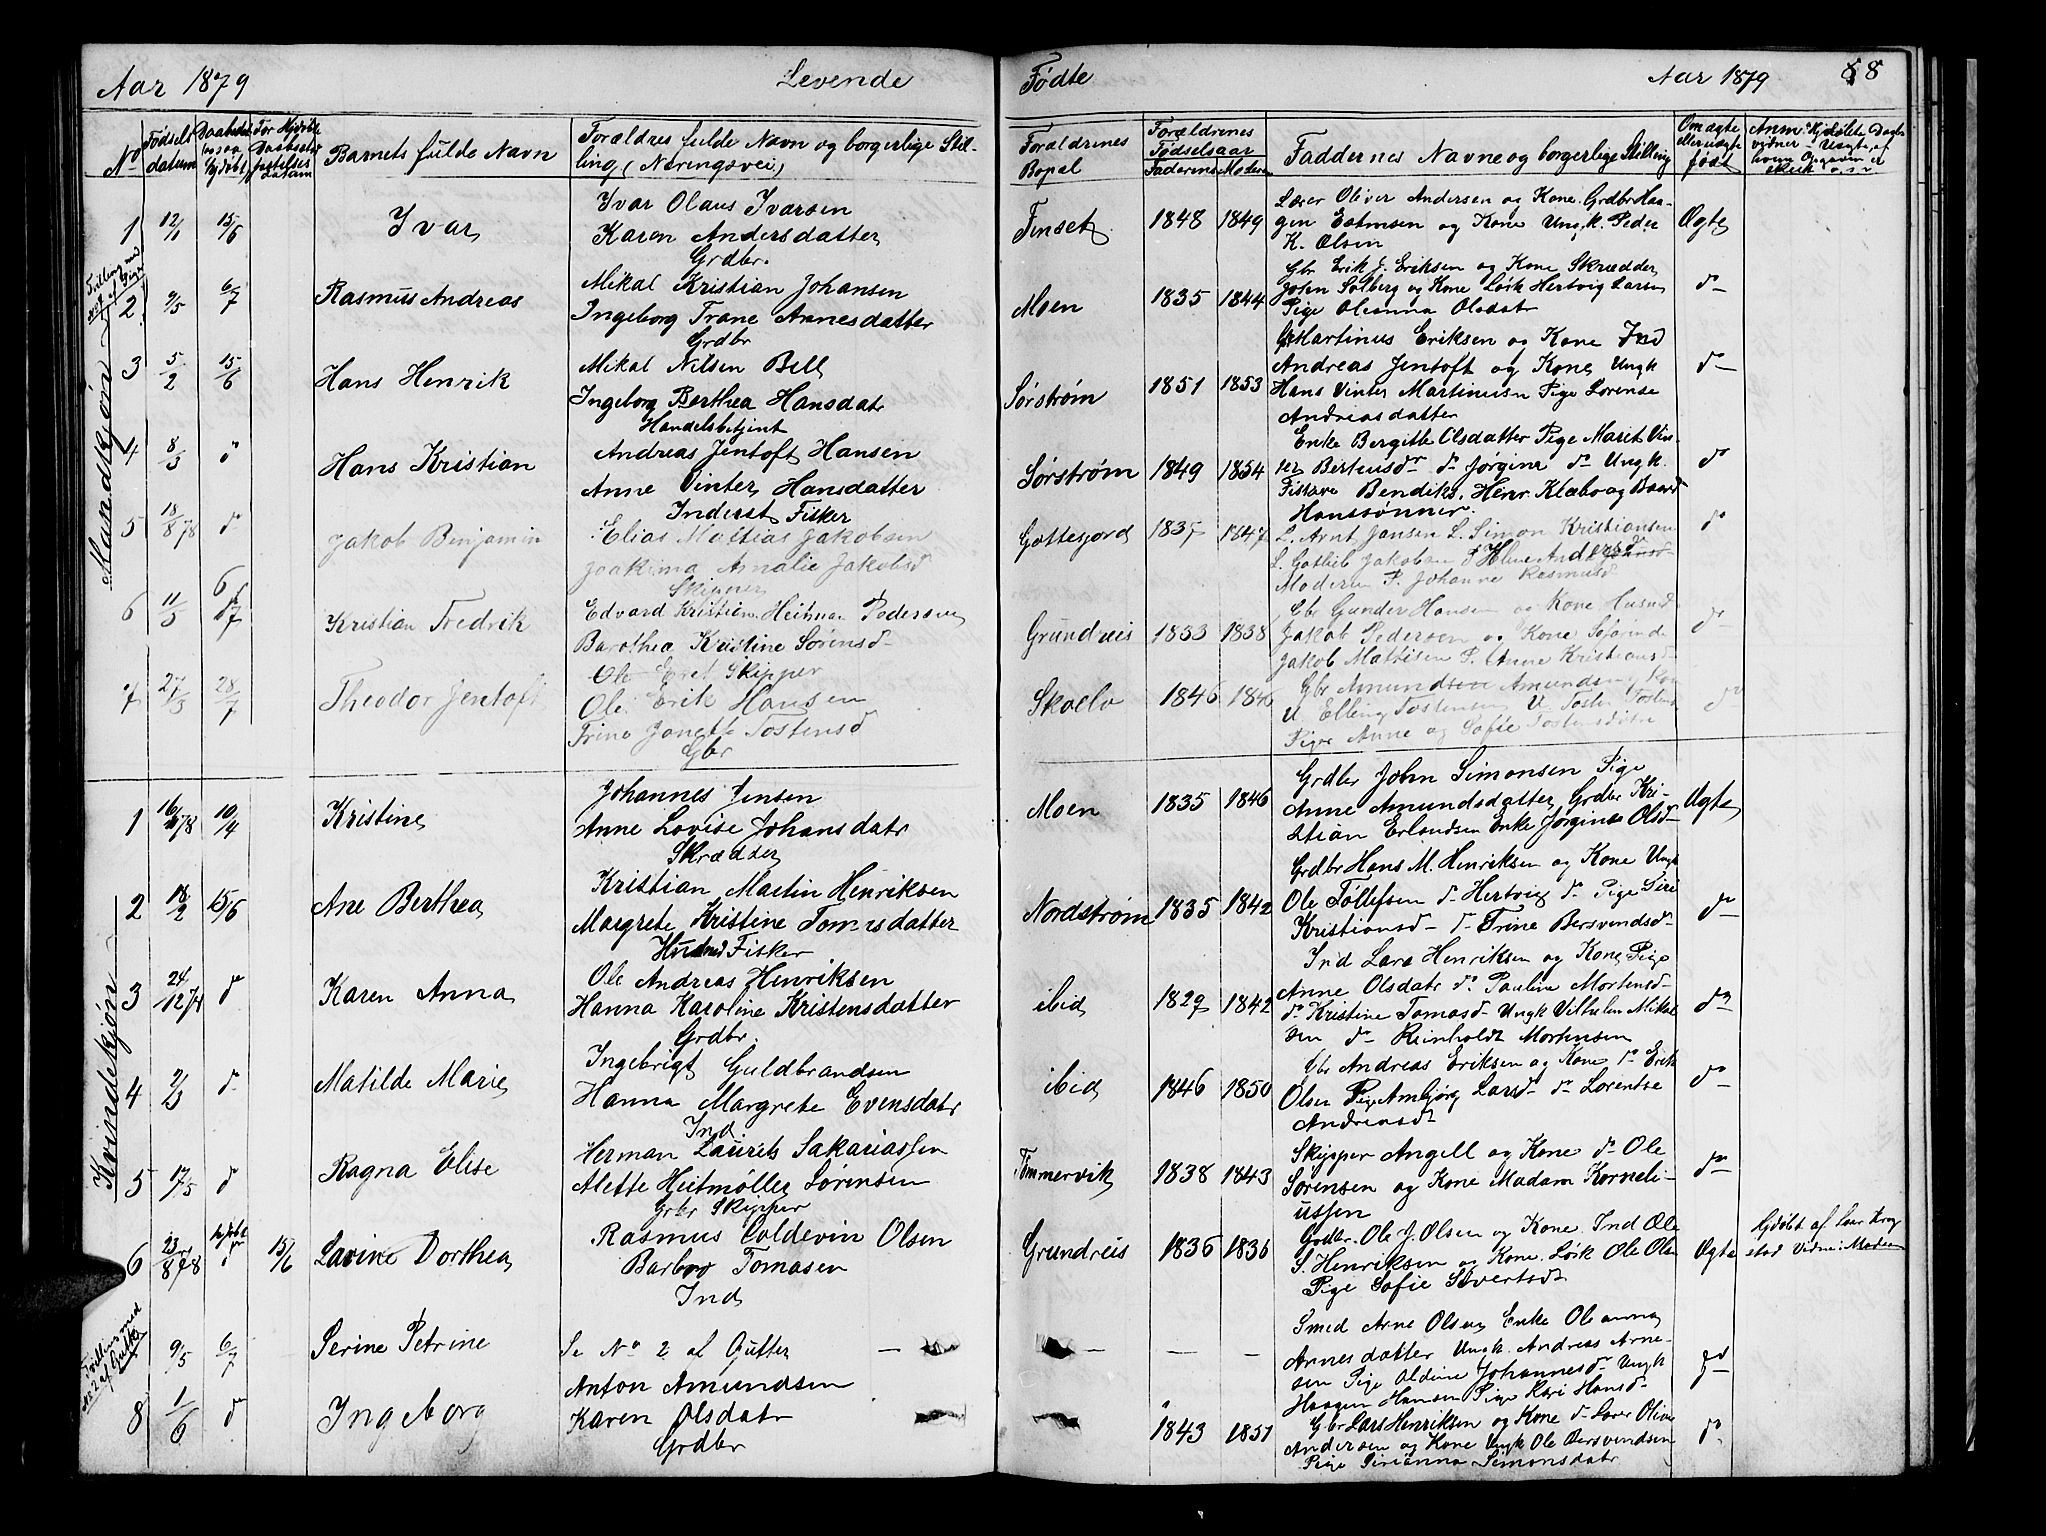 Aar 1879 Levende Fødte Aar 1879 68
No Fødsels datum Barnets fulde Navn Forældres fulde Navn og borgerlige Stilling (Næringsvei) Forældrenes Bopæl Forældrenes Fødselsaar Faderens Moderens Faddernes Navne og borgerlige Stilling Om ægte eller uægte født
Mandkjøn
1 12/1 15/6 Ivar
Ivar Olaus Ivarsen
Karen Andersdatter
Grdbr.
Finset 1848 1849
Lærer Oliver Andersen og Kone. Grdbr Haa-
gen og Kone Ungk. Peder
K. Olsen
Ægte
Tvilling med No 7 af Piger
2 9/5 6/7 Rasmus Andreas
Mikal Kristian Johansen
Ingeborg Trane Arnesdatter
Grdbr
Moen 1835 1844
Gbr Erik J. Eriksen og Kone Skrædder
John Solberg og Kone Løsk Hertvig Larsen
Pige Oleanna Olsdatr
do
3 5/2 15/6 Hans Henrik
Mikal Nilsen Bell
Ingeborg Berthea Hansdatr
Handelsbetjent
Sørstrøm 1851 1853
Martinus Eriksen og Kone Ind
Andreas Jentoft og Kone Ungk
Hans Vinter Martinusn Pige Lorense
Andreasdatter
do
4 8/3 do Hans Kristian
Andreas Jentoft Hansen
Anne Vinter Hansdatter
Inderst Fisker
Sørstrøm 1849 1854
Enke Bergitte Olsdatter Pige Marit Vin-
ter Berteusdr do Jørgine do Ungk.
Fiskere Bendikt, Henr. Klæbo og Baard
Hanssønner.
do
5 18/8 78 do Jakob Benjamin
Elias Mattias Jakobsen
Joakima Amalie Jakobsd
Skipper
Gottesjord 1837 1847
L. Arnt Jansen L. Simon Kristiansen
L. Gotlieb Jakobsen
Moderen P. Johanne Rasmusd
do
6 11/3 6/7 Kristian Fredrik
Edvard Kristian Heitman Pedersen
Barothea Kristine Sørensd
Ole Eret Skipper
Grundreis 1833 1838
Gbr Gunder Hansen og Kone Husmd
Jakob Pedersen og Kone
Jakob Mattisen P. Anne Kristiansd
do
7 27/3 28/7 Theodor Jentoft
Ole Erik Hansen
Trine Janette Tostensd
Gbr
Skoelv 1846 1846
Gbr Amundsen Amundsen og Kon
U. Elling Tostensen U. Tosten Tostens
Piger Anne og Sofie Tostensdøtre
do
Kvindekjøn
1 16/ 78 10/4 Kristine
Johannes Jensen
Anne Lovise Johansdatr
Skrædder
Moen 1835 1846
Grdbr John Simonsen Pige
Anne Amundsdatter Grdbr Kri-
stian Erlandsen Enke Jørgine Olsd
Ægte
2 18/2 15/6 Ane Berthea
Kristian Martin Henriksen
Margrete Kristine Tomasdatter
Husmd Fisker
Nordstrøm 1835 1842
Grdbr Hans M. Henriksen og Kone Ungk
Ole Tollefsen do Hertvig do Pige Siri
Kristiansd do Trine Bersvendsd
do
3 24/12 78 do Karen Anna
Ole Andreas Henriksen
Hanna Karoline Kristensdatter
Grdbr.
ibid 1829 1842
Ind Lars Henriksen og Kone Pige
Anne Olsdatr do Pauline Mortensd
do Kristine Tomasd Ungk Vilhelm Mikal
sen do Reinholdt Mortensen
do
4 2/3 do Matilde Marie
Ingebrigt Guldbrandsen
Hanna Margrete Evensdatr
Ind.
ibid 1846 1850
Gbr Andreas Eriksen og Kone do Erik
Olsen Pige Ambjørg Larsd do Lorentse
Andreasd
do
5 17/5 do Ragna Elise
Herman Laurits Sakariassen
Alette Heitmøller Sørensen
Grbr Skipper
Tømmervik 1838 1843
Skipper Angell og Kone do Ole
Sørensen og Kone Madam Korneli-
ussen
do
6 23/8 78 hjdbt do 15/6 Lavine Dorthea
Rasmus Coldevin Olsen
Barbro Tomasen
Ind
Grundreis 1836 1836
Grdbr. Ole J. Olsen og Kone Ind Ole
S. Henriksen og Kone Løsk Ole Olsen
Pige Sofie Sivertsdr
Ægte
Hjdøbt af Lær Krog
stad Vidne: Moderen
Tvilling med No 2 af Gutter
9/5 6/7 Serine Petrine
Se No 2 af Gutter
— — —
Smed Arne Olsen Enke Oleanna
Arnesdatter Ungk. Andreas Arne-
sen Pige Oldine Johannesd Ungk
Haagen Hansen Pige Kari Hansd
do
8 1/6 do Ingeborg
Anton Amundsen
Karen Olsdatr
Grdbr
1843 1851
Gbr Lars Henriksen og Kone do Lærer Oliver
Andersen og Kone Ungk Ole Bersvendsen
Pige Sirianna Simonsdatr
do